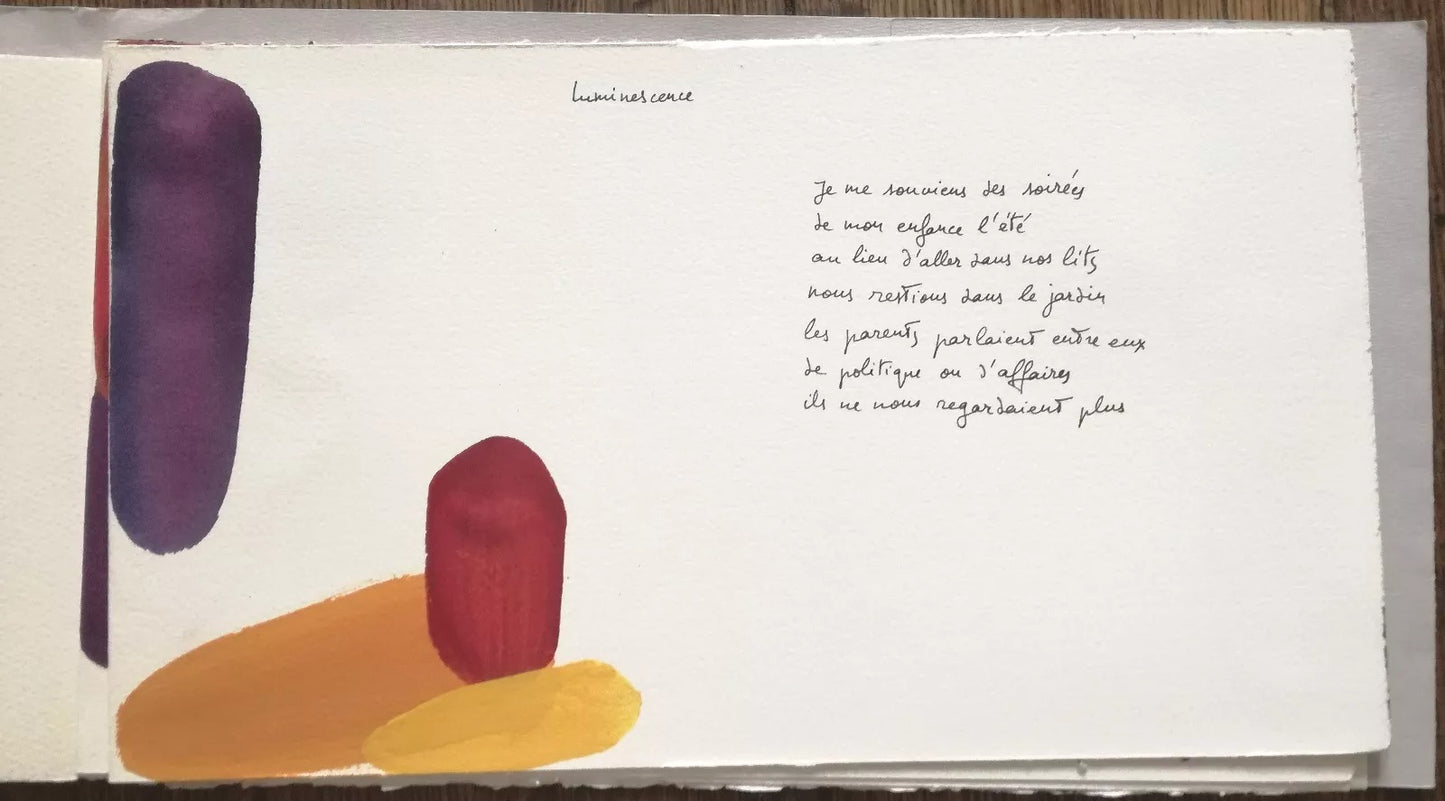 Luminescence
Je me souviens des soirées
de mon enfance l'été
au lieu d'aller dans nos lits
nous restions dans le jardin
les parents parlaient entre eux
de politique ou d'affaires
ils ne nous regardaient plus